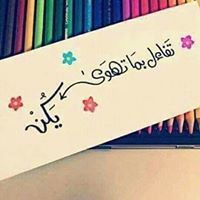 تفاءل بما تهوى
يَكُنْ